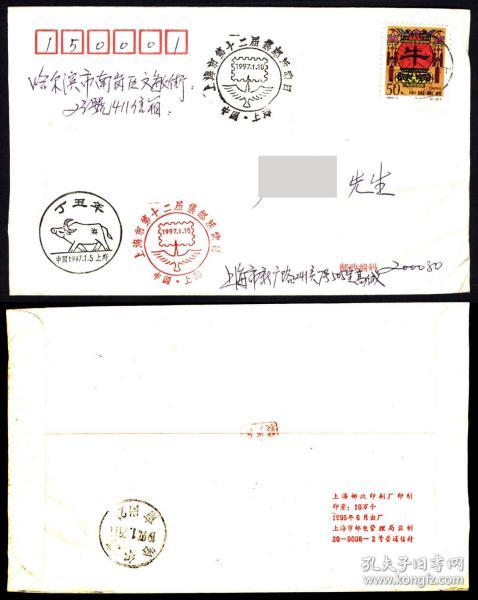 150001
哈尔滨市南岗区文教街
23號1411信箱
上海市第十二届集邮联欢日
1997.1.10
中国·上海
牛
50分
中国邮政
先生
丁丑年
中国1997.1.5上海
上海市第十二届集邮联欢日
1997.1.10
中国·上海
上海市
邮政编码
上海邮政印刷厂印制
印量：10万个
1996年6月出厂
上海市邮电管理局监制
20-0008-2号普通信封
孔夫子旧书网